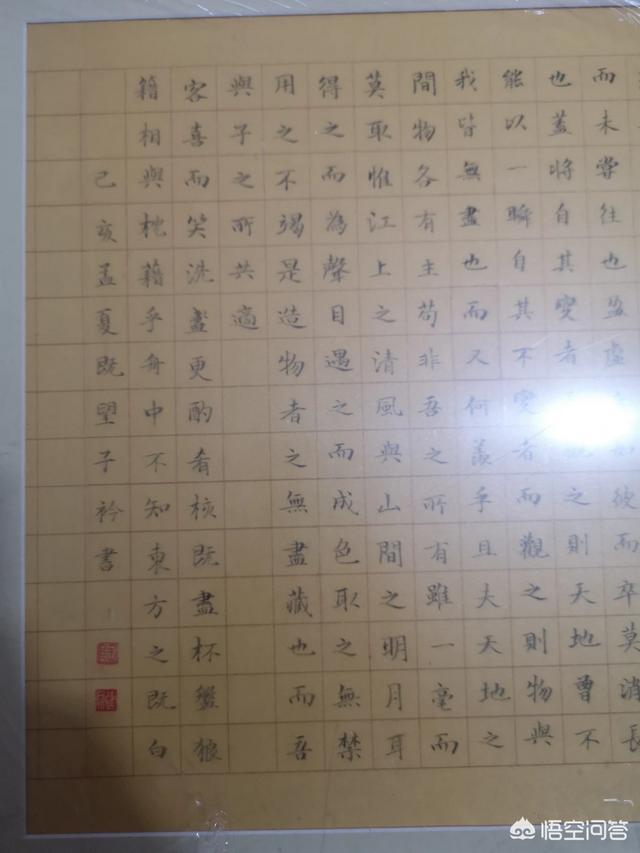 而未嘗往也盈虛彼而卒莫消長
也蓋將自其變者之則天地曾不
能以一瞬自其不變者而觀之則物與
我皆無盡也而又何羨乎且夫天地之
間物各有主苟非吾之所有雖一毫而
莫取惟江上之清風與山間之明月耳
得之而為聲目遇之而成色取之無禁
用之不竭是造物者之無盡藏也而吾
與子之所共適
客喜而笑洗盞更酌肴核既盡杯盤狼
籍相與枕藉乎舟中不知東方之既白
己亥孟夏既望子衿書
悟空问答